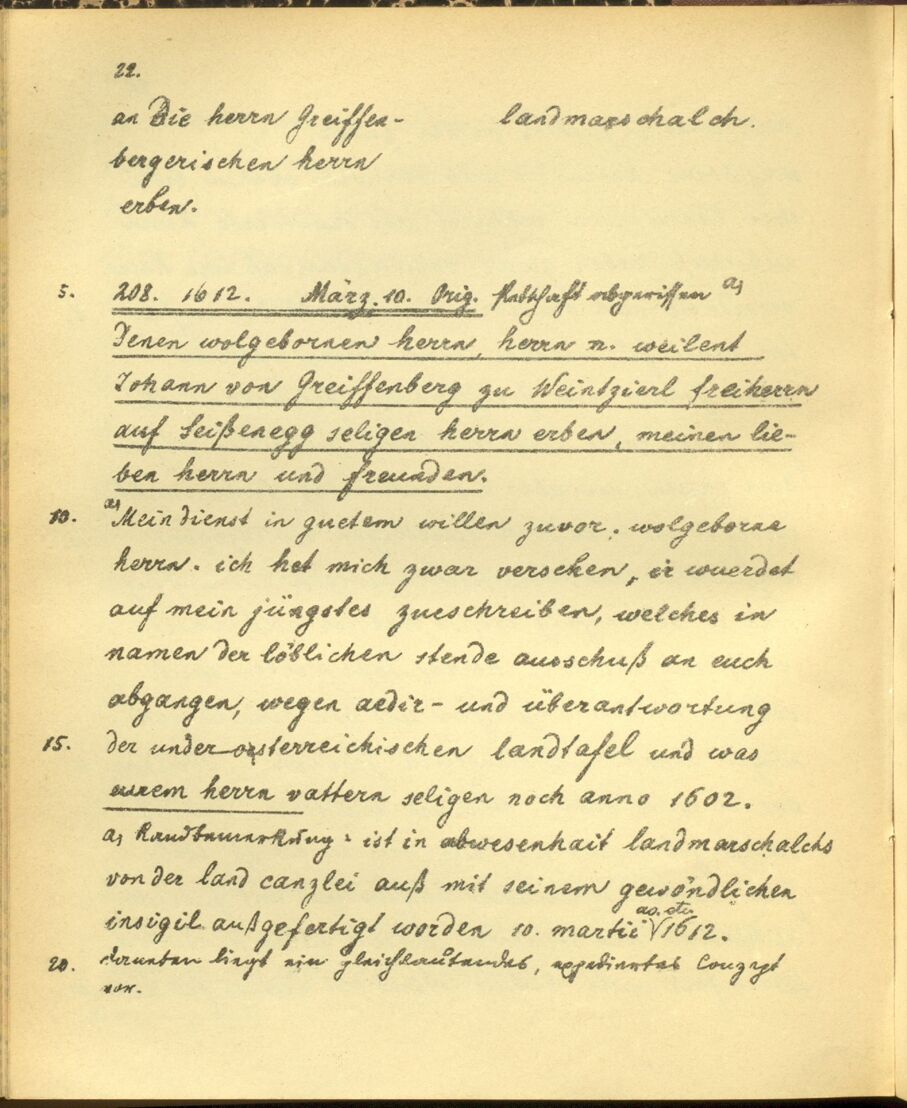 22.
an Die herrn Greiffen- landmarschalch.
bergerischen herrn
erben.
5. 208. 1612. März. 10. Orig. Petschaft abgerissen a)
Denen wolgebornen herrn, herrn n. weilent
Johann von Greiffenberg zu Weintzierl freiherrn
auf Seißenegg seligen herrn erben, meinen lie-
ben herrn und freunden.
10. a) Mein dienst in guetem willen zuvor. wolgeborne
herrn. ich het mich zwar versehen, ir wuerdet
auf mein jüngstes zueschreiben, welches in
namen der löblichen stende ausschuß an euch
abgangen, wegen aedir- und überantwortung
15. der under oesterreichischen landtafel und was
eurem herrn vattern seligen noch anno 1602.
a) Randbemerkung: ist in abwesenhait landmarschalchs
von der land canzlei auß mit seinem gewöndlichen
insigil außgefertigt worden 10. martii ao. etc. 1612.
20. daneben liegt ein gleichlautendes, expediertes Conzept
vor.